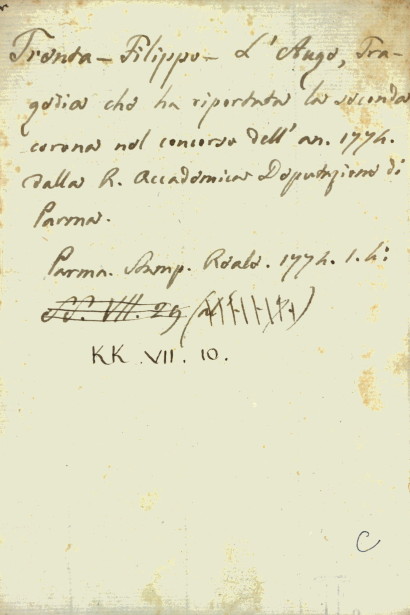 Trenta - Filippo - L'Auge, Tra-
gedia che ha riportata la seconda
corona nel concorso dell' an. 1774.
dalla R. Accademica Deputazione di
Parma.
Parma. Stamp. Reale. 1774. 1. 4:
SS. VII. 29
KK. VII. 10.
C